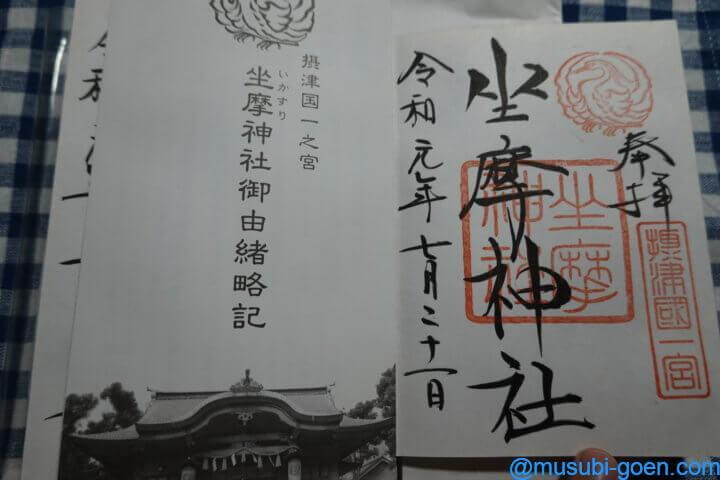 奉拝
摂津國一宮
坐摩神社
坐摩
神社
令和元年七月二十一日
摂津国一之宮
いかすり
坐摩神社御由緒略記
@musubi-goen.com